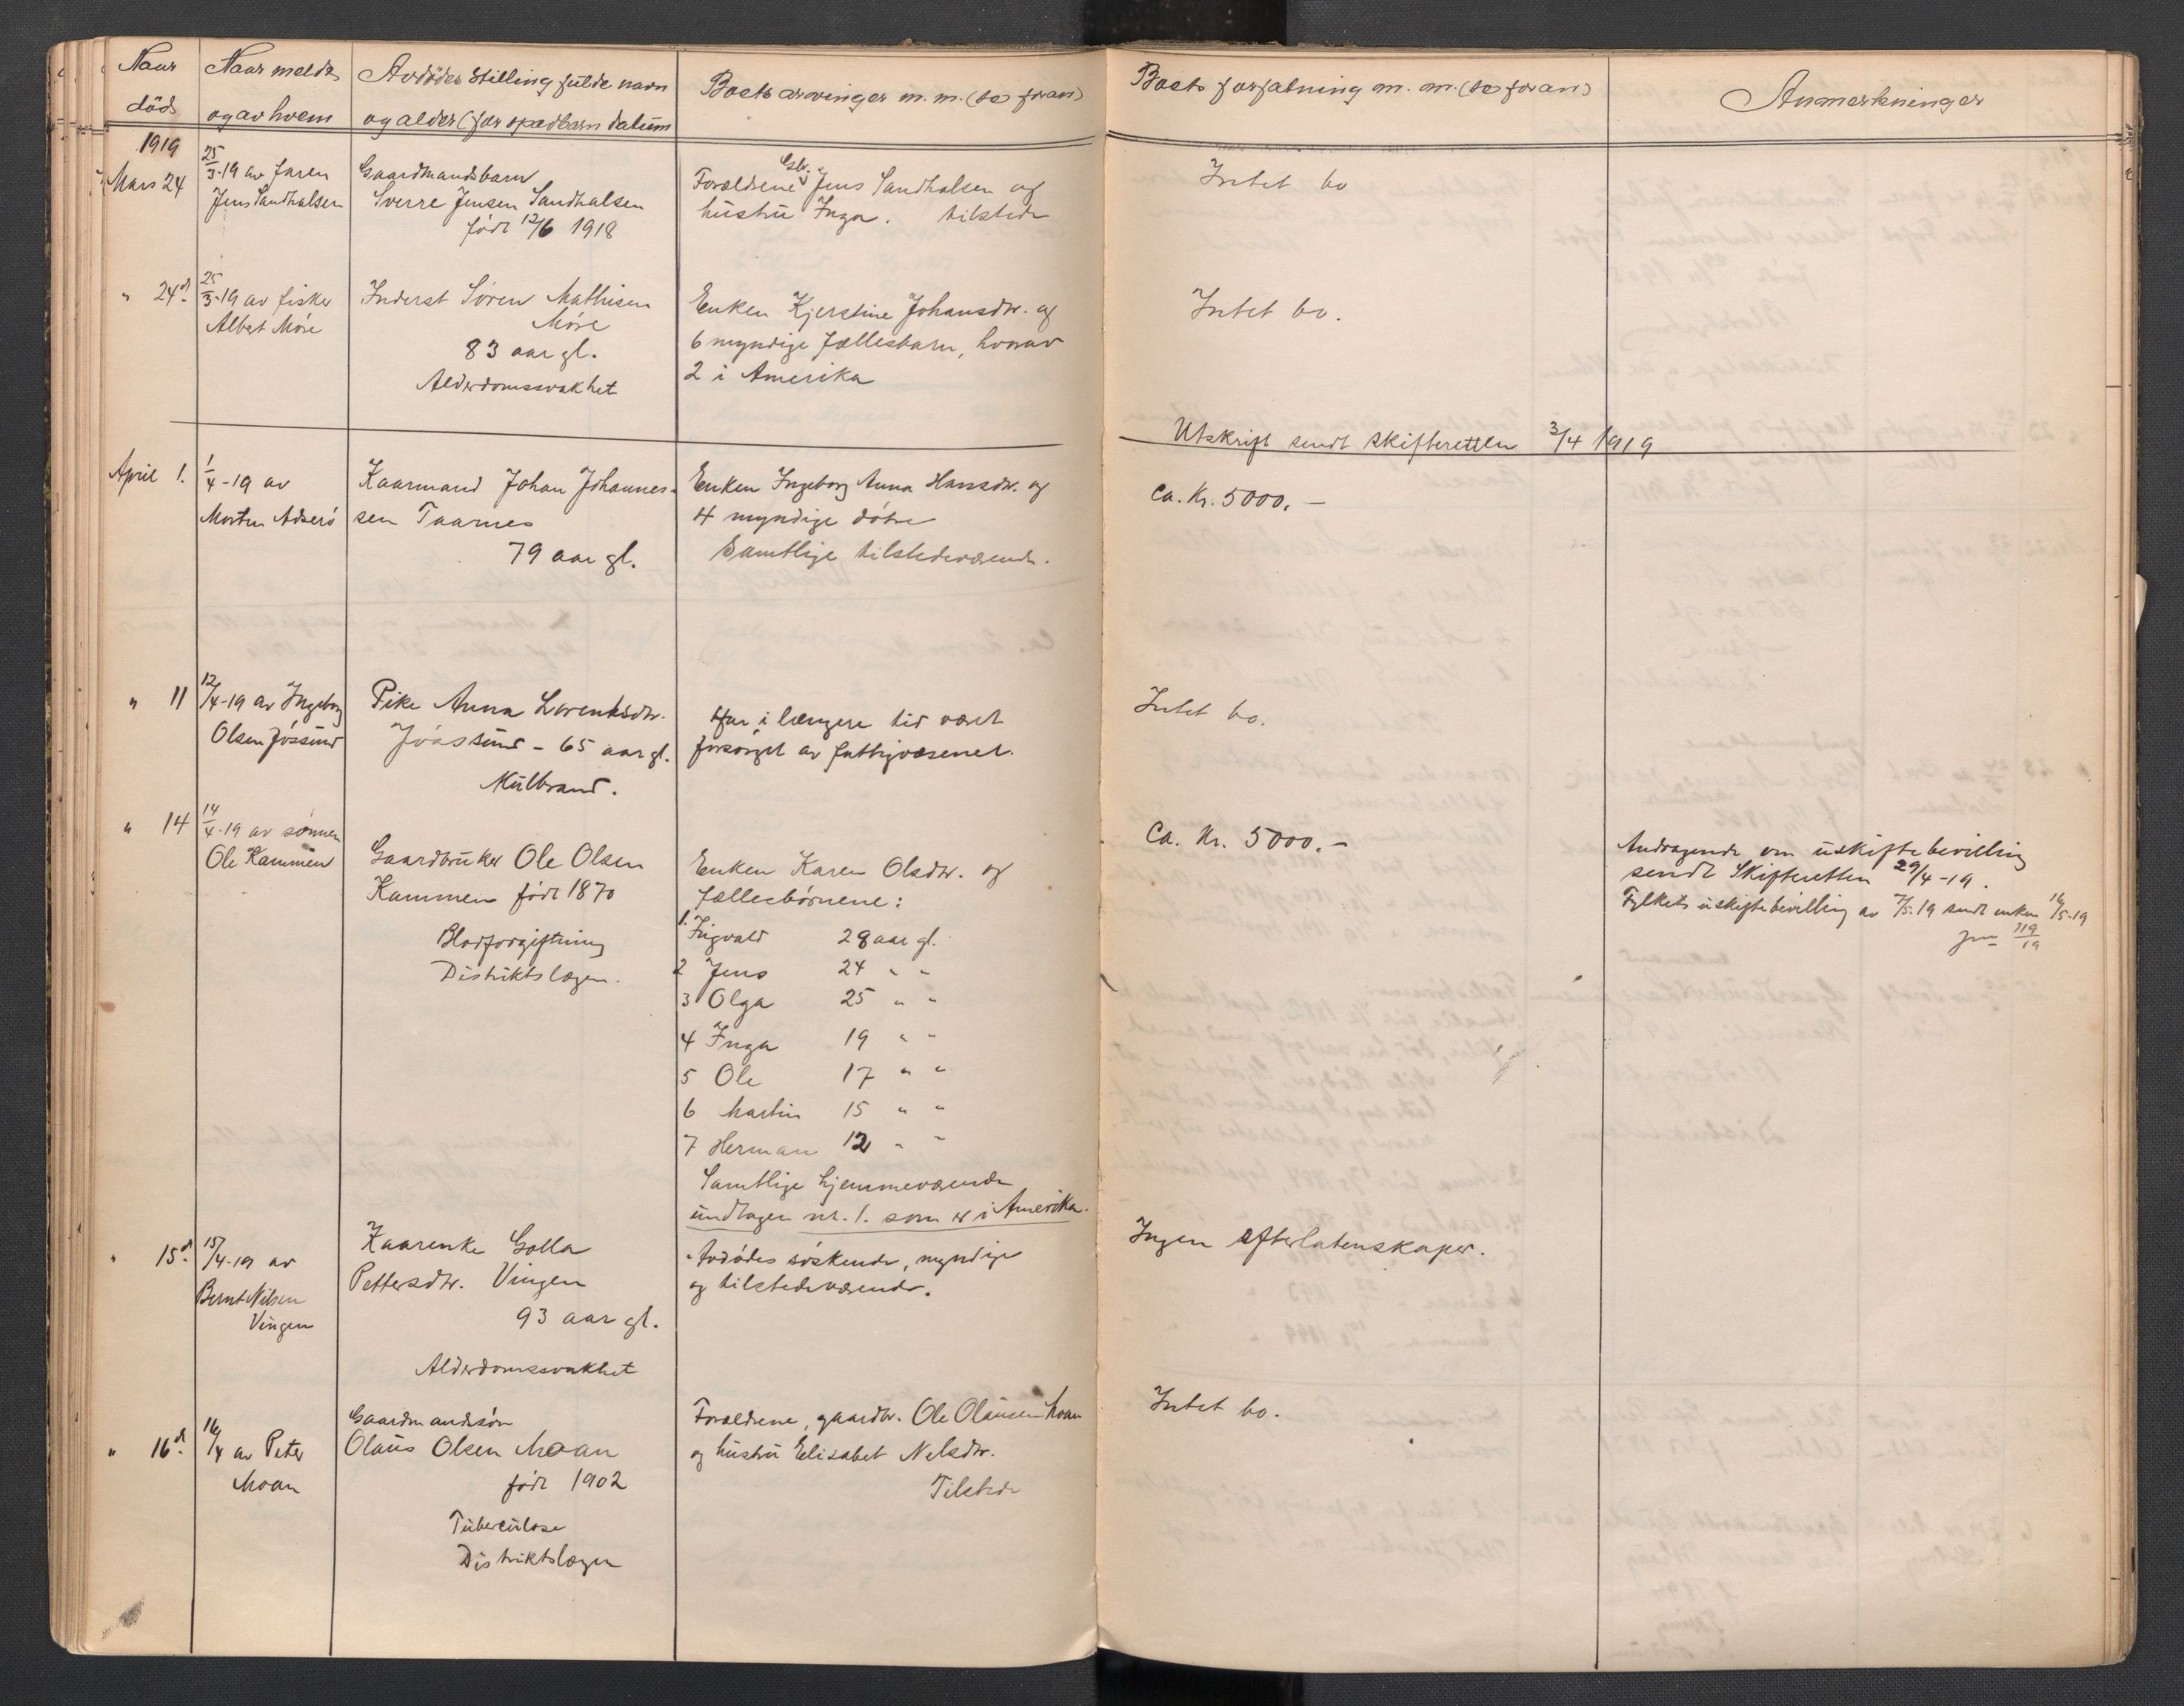 Naar
død
Naar meldt
og av hvem
Avdødes stilling fulde navn
og alder (for spædbarn datum
Boets arvinger m. m. (se foran)
Boets forfatning m. m. (se foran)
Anmerkninger
1919
Mars 24
25/3-19 av faren
Jens Sandhalsen
Gaardmandsbarn
Sverre Jensen Sandhalsen
født 12/6 1918
Forældrene Gbr. Jens Sandhalsen og
hustru Inga. tilstede
Intet bo
" 24d.
25/3-19 av fisker
Albert Møre
Inderst Søren Mathisen
Møre
83 aar gl.
Alderdomssvakhet
Enken Kjerstine Johansdtr. og
6 myndige fællesbarn, hvorav
2 i Amerika
Intet bo.
Utskrift sendt skifteretten 3/4 1919
April 1.
1/4-19 av
Morten Adserø
Kaarmand Johan Johannes-
sen Taarnes
79 aar gl.
Enken Ingeborg Anna Hansdtr. og
4 myndige døtre
Samtlige tilstedeværende.
Ca. Kr. 5000.-
" 11
12/4-19 av Ingeborg
Olsen Jøssund
Pike Anna Lorentsdtr.
Jøssund - 65 aar gl.
Kulbrand.
Har i længere tid været
forsørget av fattigvæsenet.
Intet bo.
" 14
14/4-19 av sønnen
Ole Kammen
Gaardbruker Ole Olsen
Kammen født 1870
Blodforgiftning
Distriktslægen.
Enken Karen Olsdtr. og
fællesbørnene:
1. Ingvald 28 aar gl.
2 Jens 24 " "
3 Olga 25 " "
4 Inga 19 " "
5 Ole 17 " "
6 Martin 15 " "
7 Herman 12 " "
Samtlige hjemmeværende
undtagen nr. 1. som er i Amerika.
Ca. Kr. 5000.-
Andragende om uskiftebevilling
sendt Skifteretten 29/4-19.
Fylkets uskiftebevilling av 7/5-19 sendt enken 16/5-19
jrn 719/19
" 15d.
15/4-19 av
Bernt Nilsen
Vingen
Kaarenke Golla
Pettersdtr. Vingen
93 aar gl.
Alderdomssvakhet
Avdødes søskende, myndige
og tilstedeværende.
Ingen efterlatenskaper.
" 16d.
16/4 av Peter
Moan
Gaardmandsøn
Olaus Olsen Moan
født 1902
Tuberculose
Distriktslægen
Forældrene, gaardbr. Ole Olausen Moan
og hustru Elisabet Nelsdtr.
Tilstede
Intet bo.